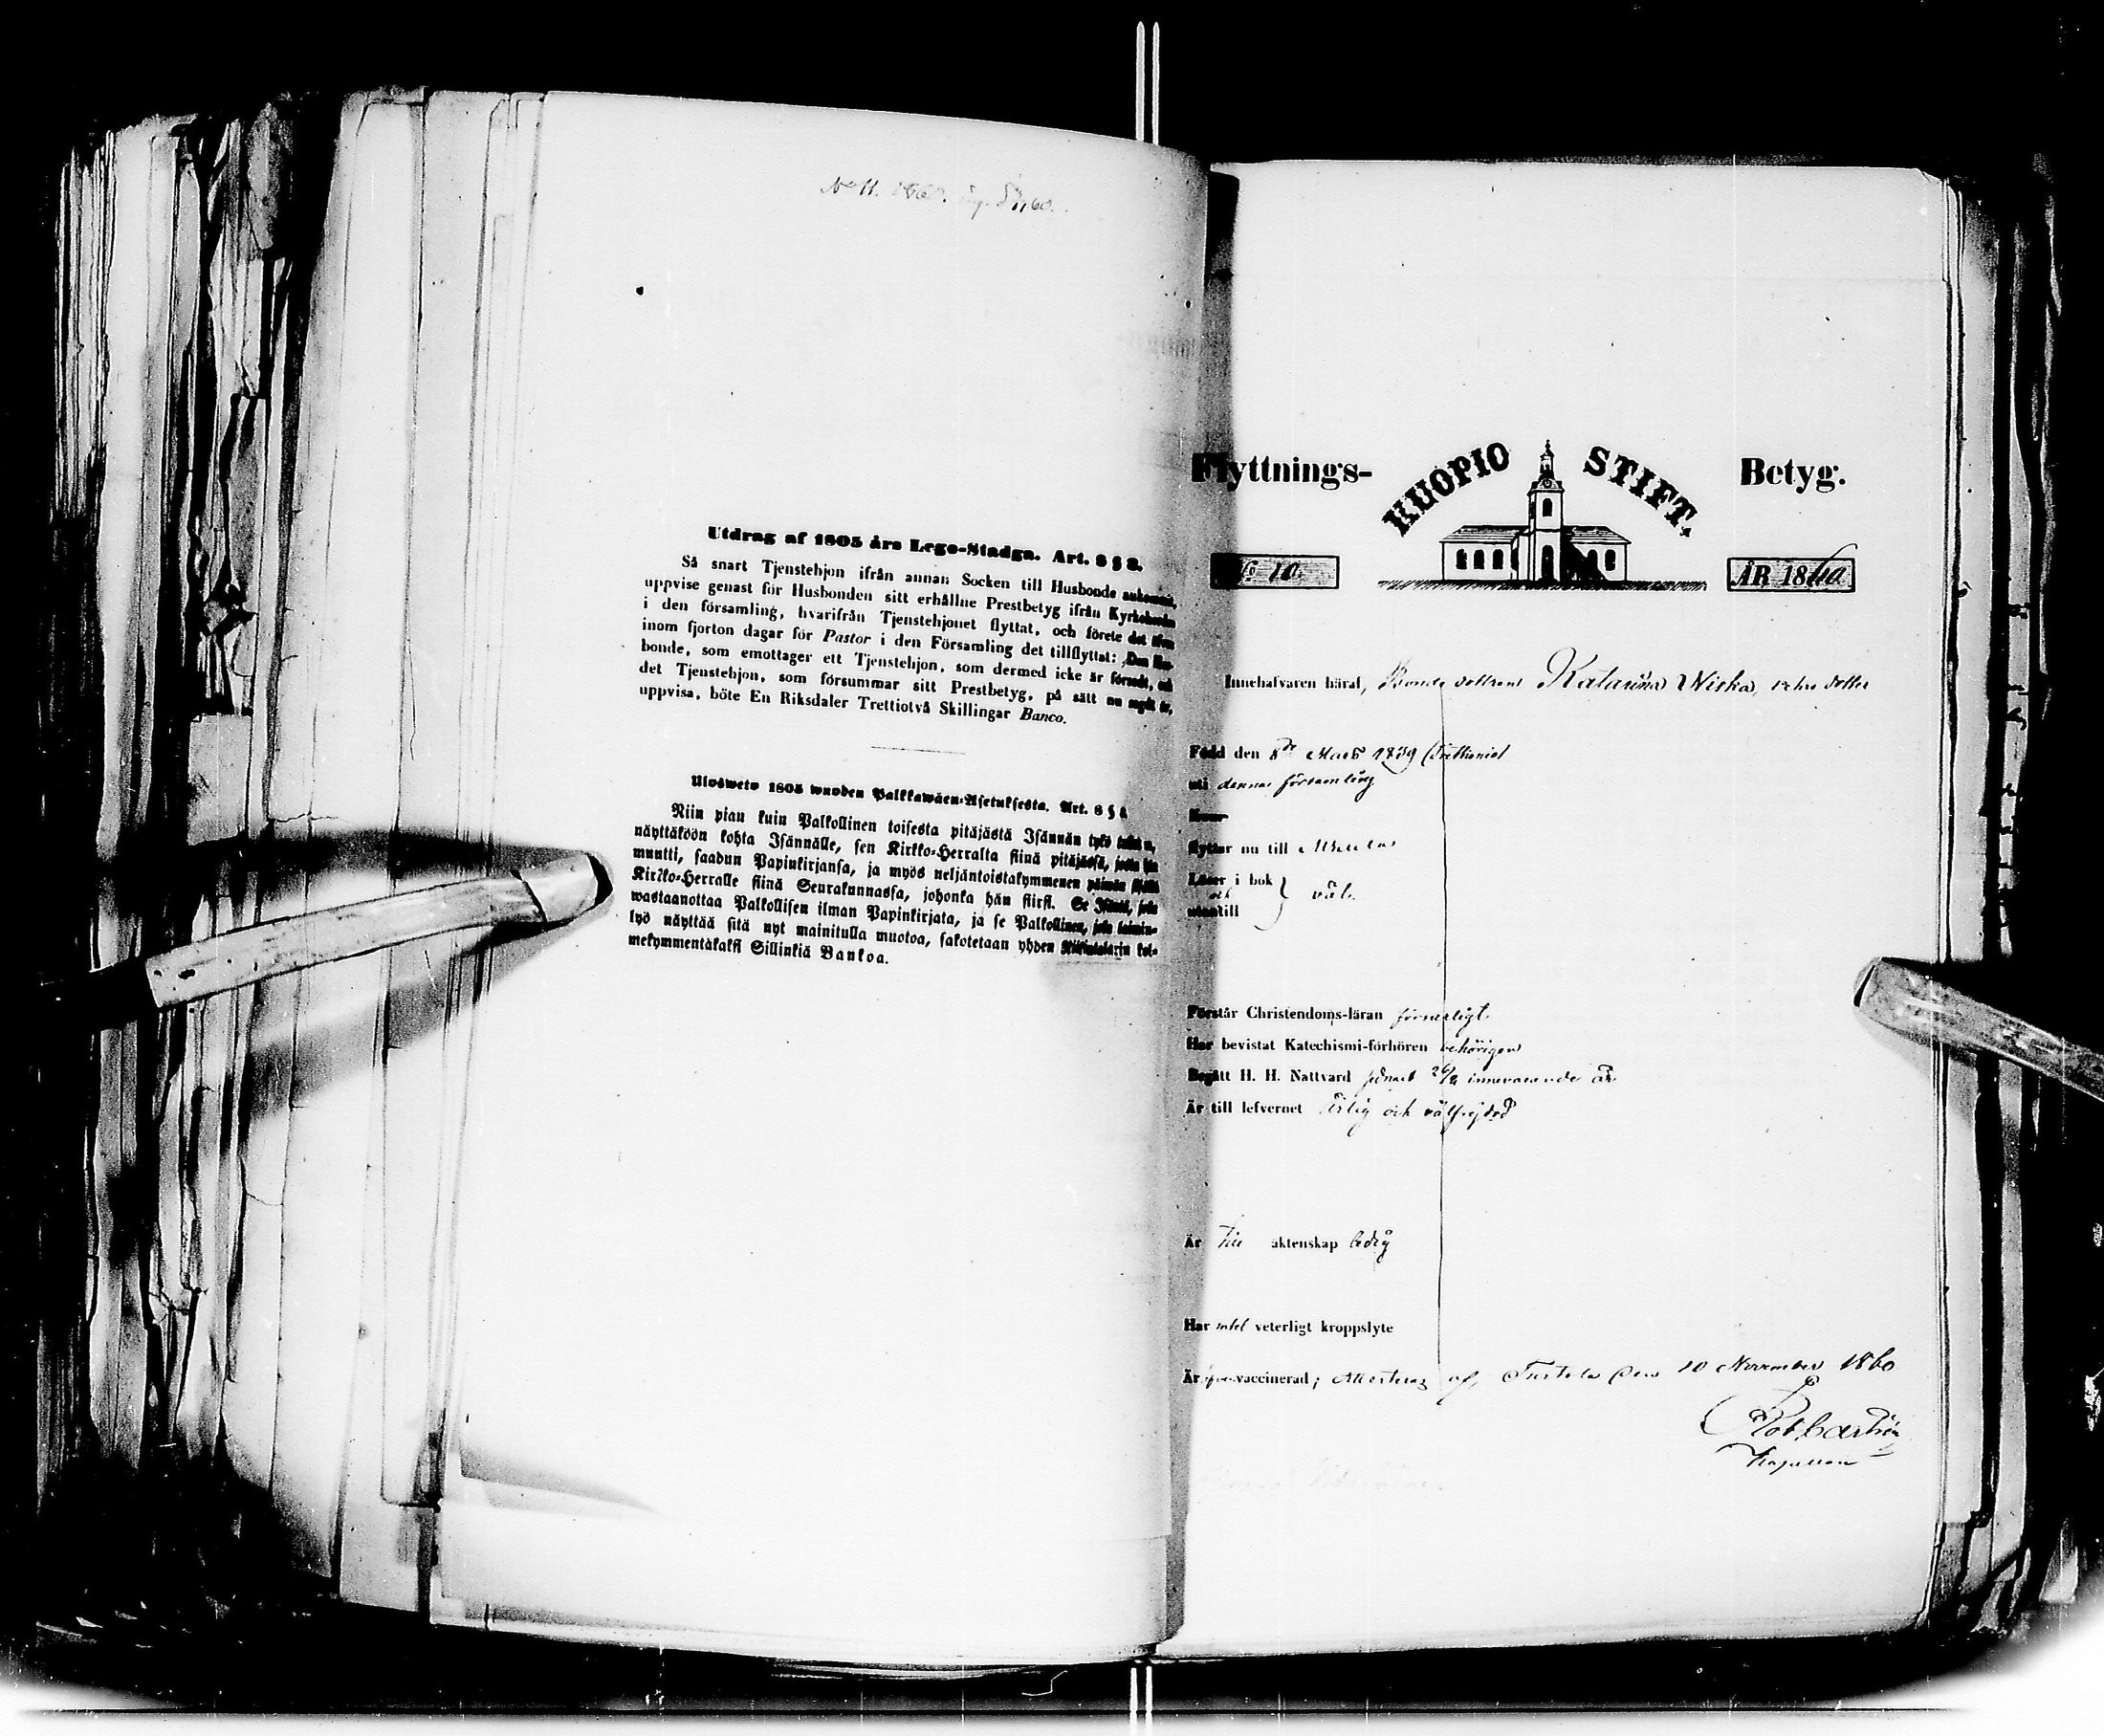 No 11. 1860.
Utdrag af 1805 års Lego-Stadga. Art. 8 § 8.
Så snart Tjenstehjon ifrån annan Socken till Husbonde ankommit,
uppvise genast för Husbonden sitt erhållne Prestbetyg ifrån Kyrkoherden
i den församling, hvarifrån Tjenstehjonet flyttat, och förete det äfven
inom fjorton dagar för Pastor i den Församling det tillflyttat: Den Hus-
bonde, som emottager ett Tjenstehjon, som dermed icke är försedt, och
det Tjenstehjon, som försummar sitt Prestbetyg, på sätt nu sagdt är,
uppvisa, böte En Riksdaler Trettiotvå Skillingar Banco.
Ulosweto 1805 wuoden Palkkawäen-Asetuksesta. Art. 8 §
Niin pian kuin Palkollinen toisesta pitäjästä Isännän tykö
näyttäköön kohta Isännälle, sen Kirkko-Herralta siinä pitäjässä, josta hän
muutti, saadun Papinkirjansa, ja myös neljäntoistakymmenen päiwän
Kirkko-Herralle siinä Seurakunnassa, johonka hän siirsi. Se Isäntä, joka
wastaanottaa Palkollisen ilman Papinkirjata, ja se Palkollinen, joka laimin-
lyö näyttää sitä nyt mainitulla muotoa, sakotetaan yhden Riikintalarin kol-
mekymmentäkaksi Sillinkiä Bankoa.
Flyttnings- KUOPIO STIFT. Betyg.
No 10. ÅR 1860
Innehafvaren häraf, Bonde dottren Katarina Niska, dotter
Född den 8de Mars 1839 (Trettionio)
uti denna församling
flyttar nu till
Läser i bok
och väl.
utantill
Förstår Christendoms-läran försvarligt.
Har bevistat Katechismi-förhören behörigen
Begått H. H. Nattvard senast innevarande år
Är till lefvernet ärlig och välfrejdad
Är till äktenskap ledig
Har intet veterligt kroppslyte
Är vaccinerad; attesteras af, den 10 November 1860